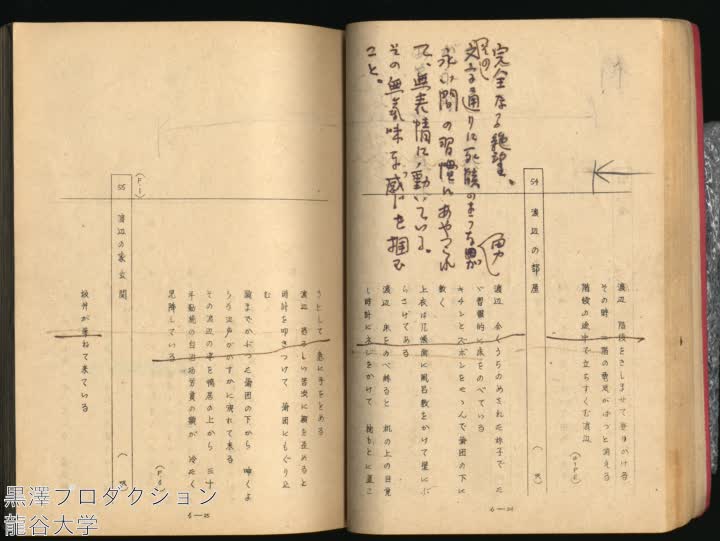 完全なる絶望。
文字通りに死骸のまうな男が
永い間の習慣にあやつられ
て、無表情に動いている。
その無気味な感じを掴む
こと。
渡辺 階段をきしませて登りかける
その時 二階の電気がぱっと消える
階段の途中で立ちすくむ渡辺
(WIPE)
54 渡辺の部屋 (夜)
渡辺 全くうちのめされた様子で たゞ習慣的に床をのべている
キチンとズボンをたゝんで蒲団の下に
敷く
上衣は几帳面に風呂敷をかけて壁にぶ
らさげてある
渡辺 床をのべ終ると 机の上の目覚
し時計にネジをかけて 枕もとに置こ
6—24
うとして 急に手をとめる
渡辺 恐ろしい苦渋に顔を歪めると
時計を叩きつけて 蒲団にもぐり込
む
頭までかぶった蒲団の下から 呻くよ
うな泣声がかすかに洩れて来る
その渡辺の姿を鴨居の上から 三十
年勤続の自治功労賞の額が 冷たく
見降している
(F.O)
(F.I)
55 渡辺の家玄関 (夜)
坂井が尋ねて来ている
6—25
黒澤プロダクション
龍谷大学